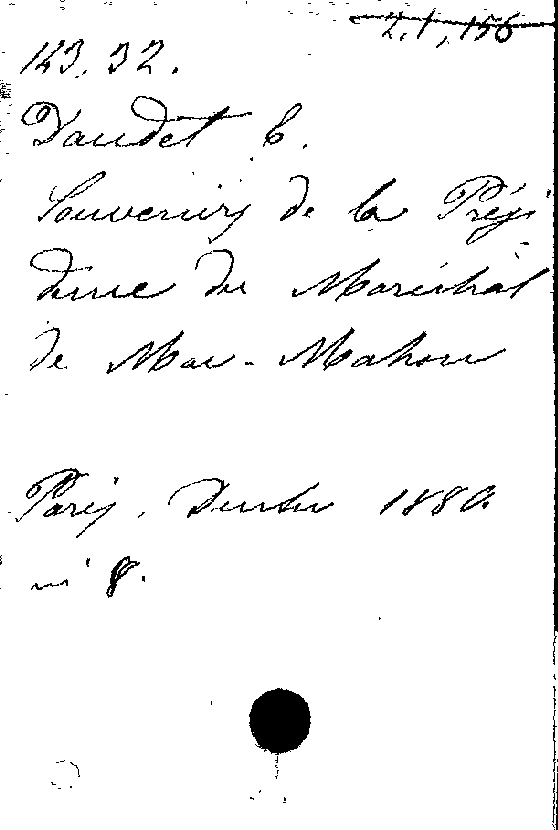 2.1,156
123.32.
Daudet E.
Souvenirs de la Prési
dence du Maréchal
de Mac-Mahon
Paris. Dentu 1880.
in 8.